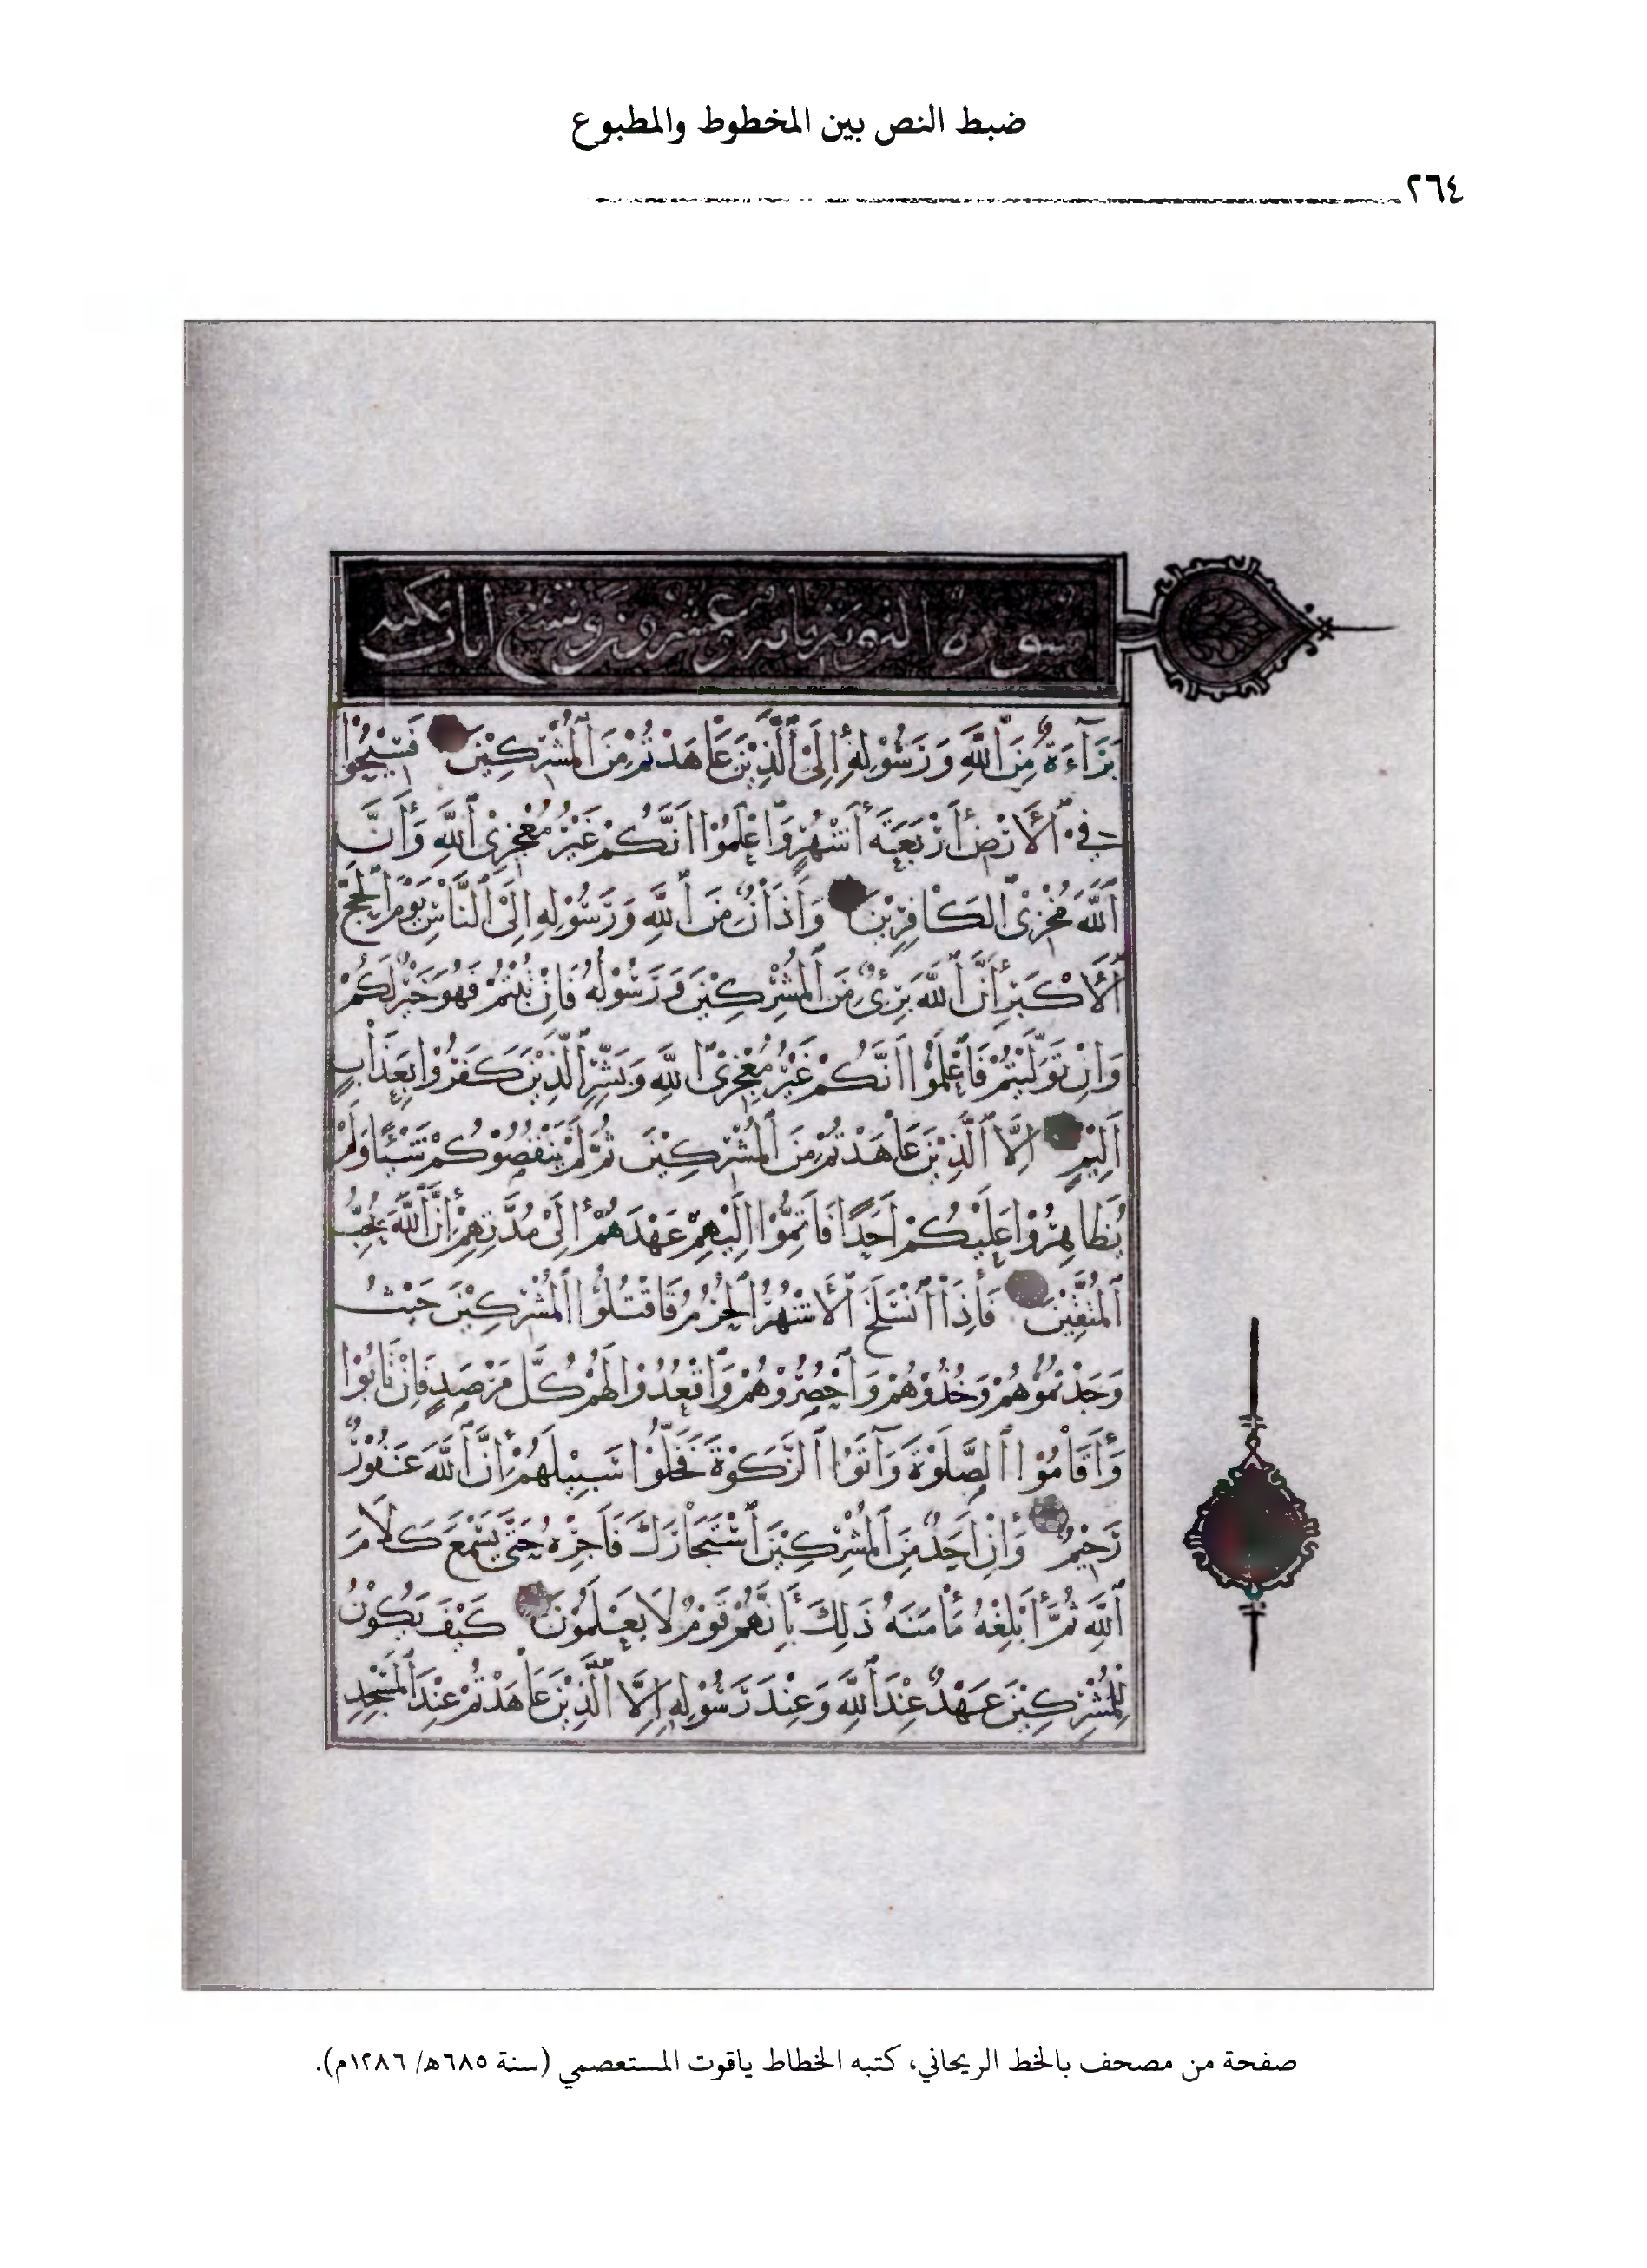 ضبط النص بين المخطوط والمطبوع
٢٦٤
سورة التوبة مائة وعشرون وتسع ايات
بَرَآءَةٌ مِنَ ٱللَّهِ وَرَسُوْلِهِ إِلَى ٱلَّذِيْنَ عَاهَدْتُمْ مِنَ ٱلْمُشْرِكِيْنَ فَسِيْحُوْا
فِي ٱلْأَرْضِ أَرْبَعَةَ أَشْهُرٍ وَٱعْلَمُوْا أَنَّكُمْ غَيْرُ مُعْجِزِي ٱللَّهِ وَأَنَّ
ٱللَّهَ مُخْزِي ٱلْكَافِرِيْنَ وَأَذَانٌ مِنَ ٱللَّهِ وَرَسُوْلِهِ إِلَى ٱلنَّاسِ يَوْمَ ٱلْحَجِّ
ٱلْأَكْبَرِ أَنَّ ٱللَّهَ بَرِيءٌ مِنَ ٱلْمُشْرِكِيْنَ وَرَسُوْلُهُ فَإِنْ تُبْتُمْ فَهُوَ خَيْرٌ لَكُمْ
وَإِنْ تَوَلَّيْتُمْ فَٱعْلَمُوْا أَنَّكُمْ غَيْرُ مُعْجِزِي ٱللَّهِ وَبَشِّرِ ٱلَّذِيْنَ كَفَرُوْا بِعَذَابٍ
أَلِيْمٍ إِلَّا ٱلَّذِيْنَ عَاهَدْتُمْ مِنَ ٱلْمُشْرِكِيْنَ ثُمَّ لَمْ يَنْقُصُوْكُمْ شَيْئًا وَلَمْ
يُظَاهِرُوْا عَلَيْكُمْ أَحَدًا فَأَتِمُّوْا إِلَيْهِمْ عَهْدَهُمْ إِلَى مُدَّتِهِمْ إِنَّ ٱللَّهَ يُحِبُّ
ٱلْمُتَّقِيْنَ فَإِذَا ٱنْسَلَخَ ٱلْأَشْهُرُ ٱلْحُرُمُ فَاقْتُلُوْا ٱلْمُشْرِكِيْنَ حَيْثُ
وَجَدْتُمُوْهُمْ وَخُذُوْهُمْ وَٱحْصُرُوْهُمْ وَٱقْعُدُوْا لَهُمْ كُلَّ مَرْصَدٍ فَإِنْ تَابُوْا
وَأَقَامُوْا ٱلصَّلَوٰةَ وَآتَوُا ٱلزَّكَوٰةَ فَخَلُّوْا سَبِيْلَهُمْ إِنَّ ٱللَّهَ غَفُوْرٌ
رَحِيْمٌ وَإِنْ أَحَدٌ مِنَ ٱلْمُشْرِكِيْنَ ٱسْتَجَارَكَ فَأَجِرْهُ حَتَّى يَسْمَعَ كَلَامَ
ٱللَّهِ ثُمَّ أَبْلِغْهُ مَأْمَنَهُ ذَلِكَ بِأَنَّهُمْ قَوْمٌ لَا يَعْلَمُوْنَ كَيْفَ يَكُوْنُ
لِلْمُشْرِكِيْنَ عَهْدٌ عِنْدَ ٱللَّهِ وَعِنْدَ رَسُوْلِهِ إِلَّا ٱلَّذِيْنَ عَاهَدْتُمْ عِنْدَ ٱلْمَسْجِدِ
صفحة من مصحف بالخط الريحاني، كتبه الخطاط ياقوت المستعصمي (سنة ٦٨٥هـ/ ١٢٨٦م).